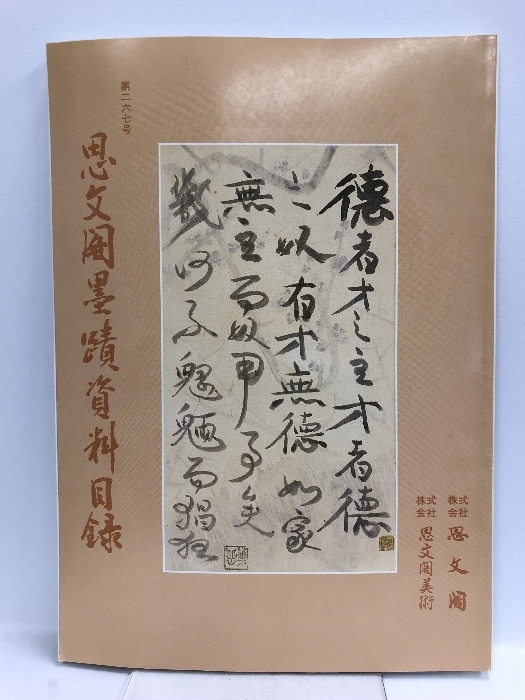 第二六七号
思文閣墨蹟資料目録
德者才之主才者德
之奴有才無德如家
無主而奴用事矣
幾何不魍魎而猖狂
株式会社 思文閣
株式会社 思文閣美術